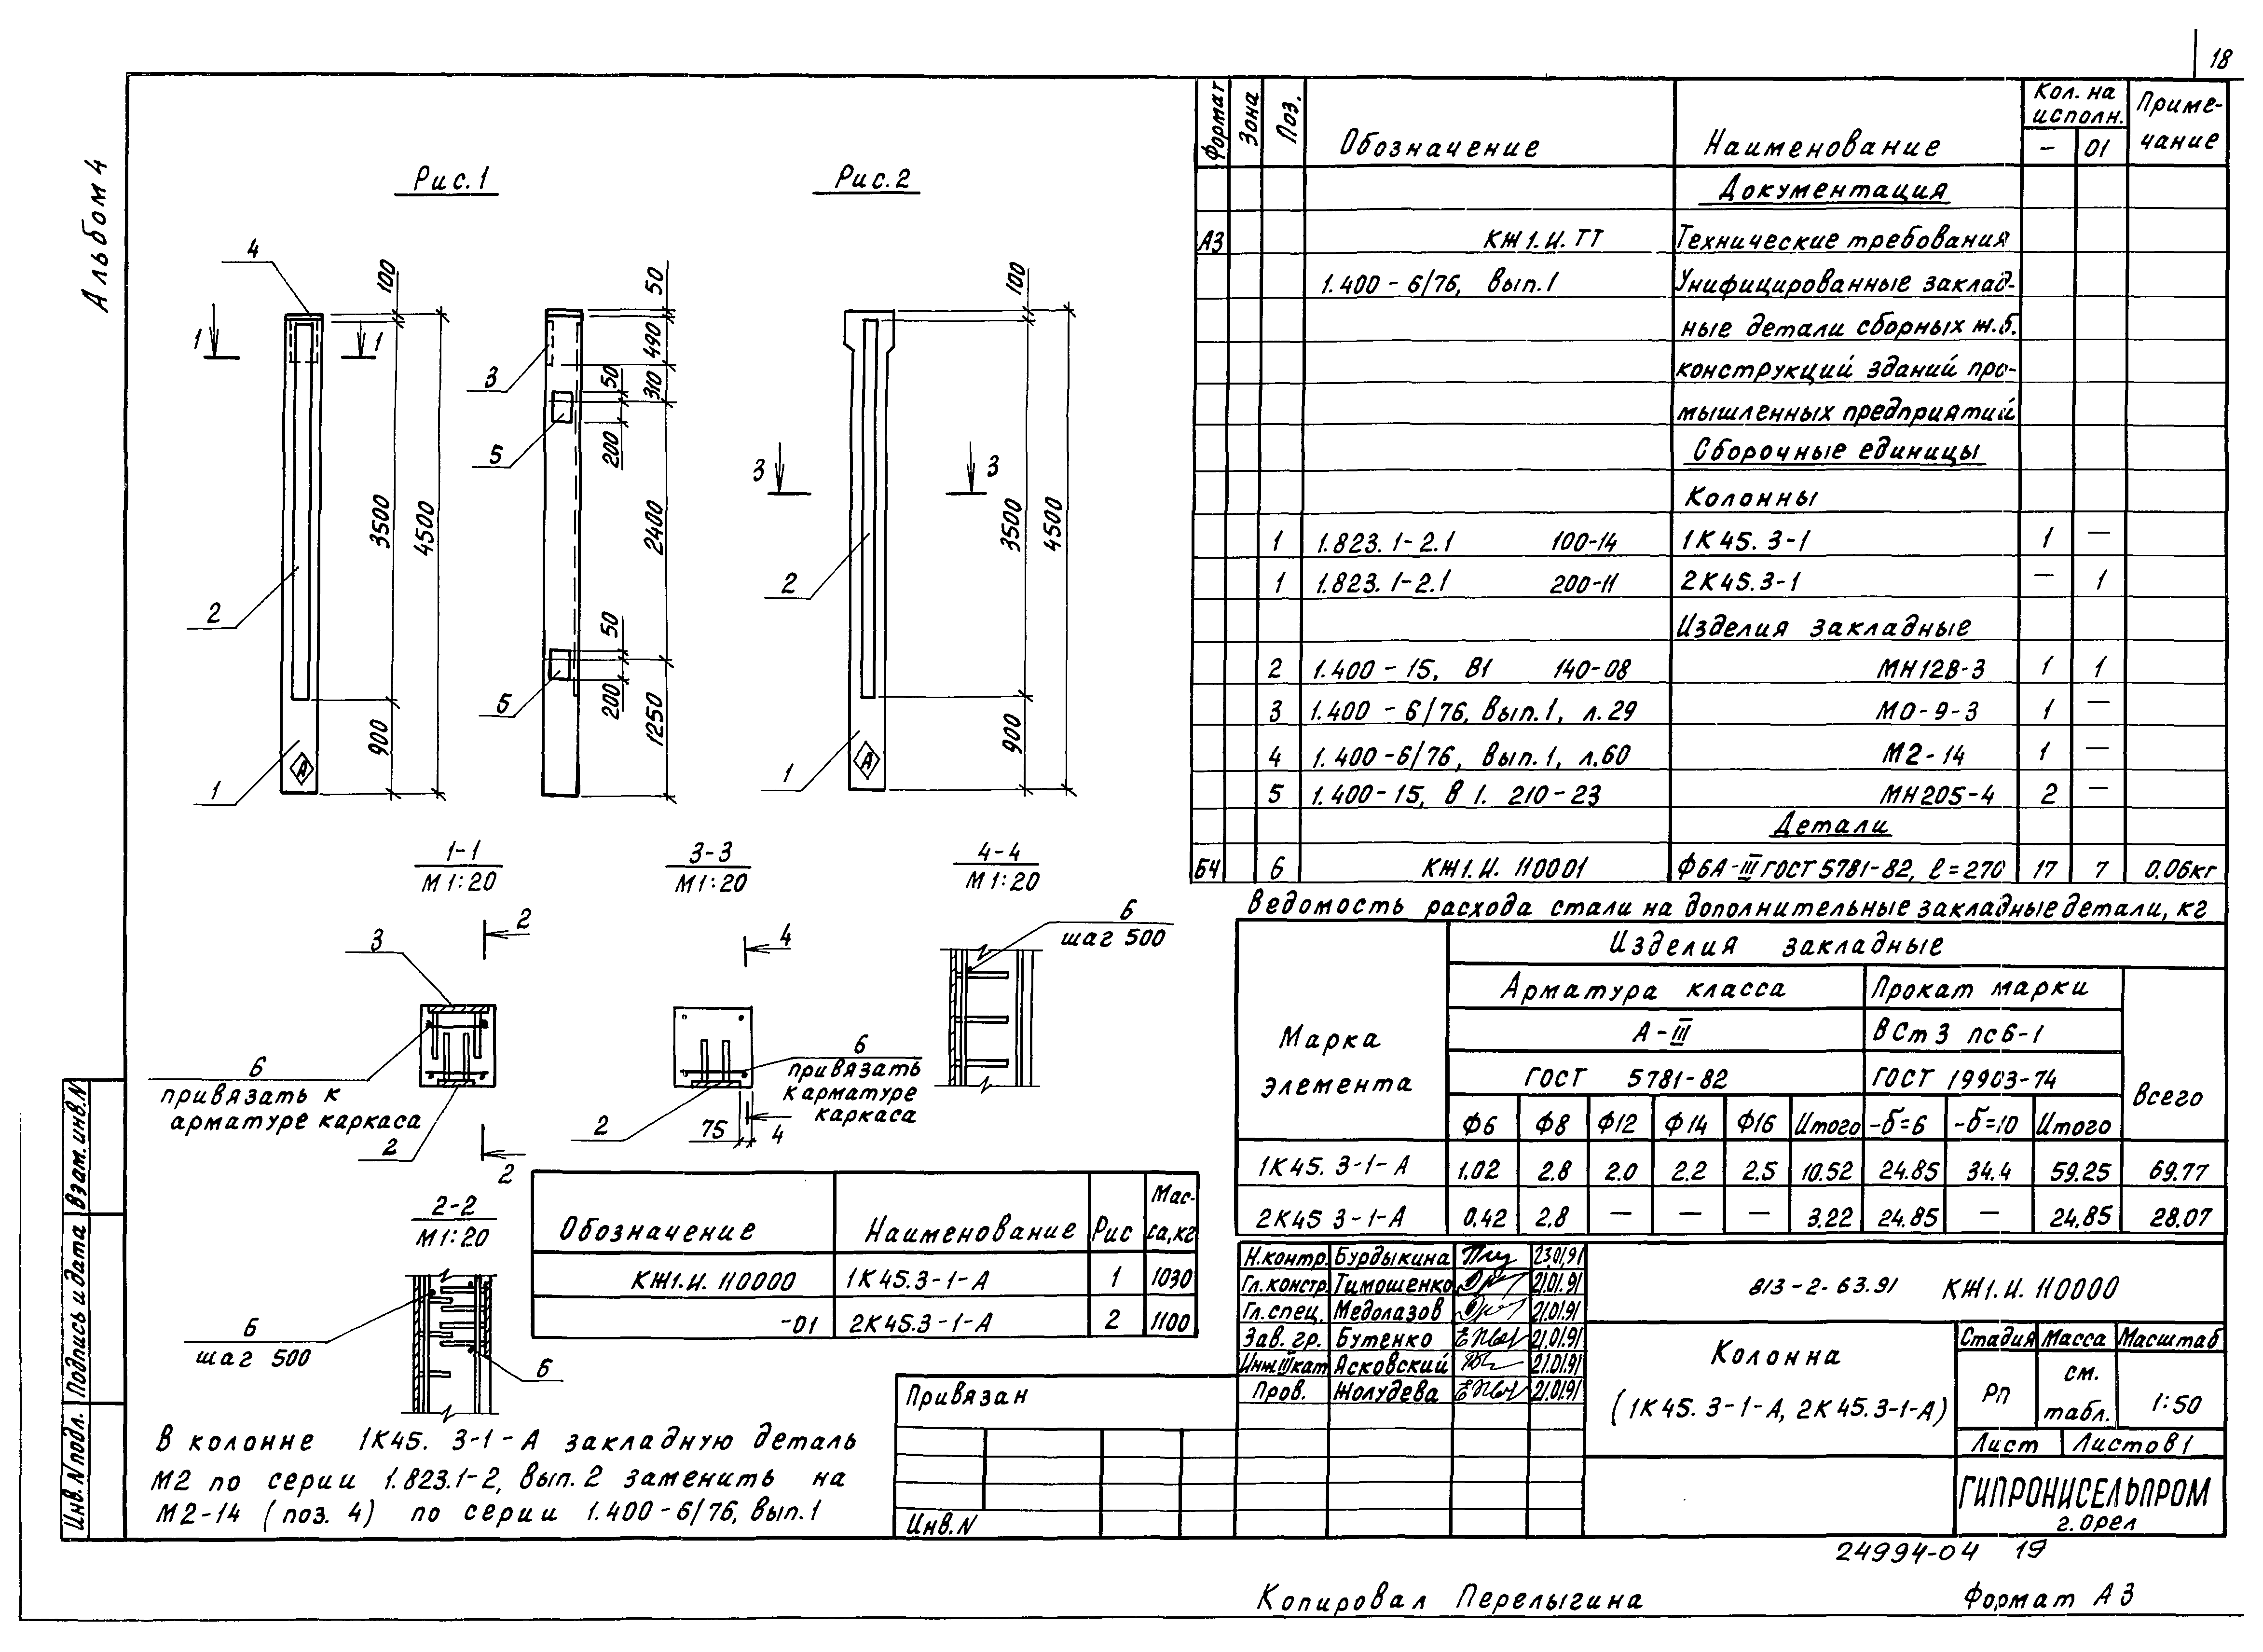 18
Альбом 4
Рис.1
Рис.2
4
100
1
1
3500
4500
2
900
1
А
50
490
310
3
50
200
5
2400
50
200
5
1250
100
3
3
3500
4500
2
900
1
А
1-1
М 1:20
3-3
М 1:20
4-4
М 1:20
2
3
6
привязать к
арматуре каркаса
2
2
4
6
привязать
к арматуре
каркаса
2
75
4
6
шаг 500
2-2
М 1:20
6
шаг 500
6
Формат Зона Поз. Обозначение Наименование Кол. на исполн. Приме-
- 01 чание
Документация
А3 КЖ1.И.ТТ Технические требования
1.400-6/76, вып.1 Унифицированные заклад-
ные детали сборных ж.б.
конструкций зданий про-
мышленных предприятий
Сборочные единицы
Колонны
1 1.823.1-2.1 100-14 1К45.3-1 1 —
1 1.823.1-2.1 200-11 2К45.3-1 — 1
Изделия закладные
2 1.400-15, В1 140-08 МН128-3 1 1
3 1.400-6/76, вып.1, л.29 МО-9-3 1 —
4 1.400-6/76, вып.1, л.60 М2-14 1 —
5 1.400-15, В1. 210-23 МН205-4 2 —
Детали
БЧ 6 КЖ1.И.110001 Ф6А-III ГОСТ 5781-82, ℓ=270 17 7 0.06кг
Ведомость расхода стали на дополнительные закладные детали, кг
Марка элемента
Изделия закладные
Арматура класса Прокат марки
А-III ВСт3 пс6-1
ГОСТ 5781-82 ГОСТ 19903-74
Всего
Ф6 Ф8 Ф12 Ф14 Ф16 Итого -δ=6 -δ=10 Итого
1К45.3-1-А 1.02 2.8 2.0 2.2 2.5 10.52 24.85 34.4 59.25 69.77
2К45 3-1-А 0.42 2.8 — — — 3.22 24.85 — 24.85 28.07
Обозначение Наименование Рис Мас-са,кг
КЖ1.И.110000 1К45.3-1-А 1 1030
-01 2К45.3-1-А 2 1100
В колонне 1К45.3-1-А закладную деталь
М2 по серии 1.823.1-2, вып.2 заменить на
М2-14 (поз. 4) по серии 1.400-6/76, вып.1
Привязан
Инв.N
Н.контр. Бурдыкина 23.01.91
Гл.констр. Тимошенко 21.01.91
Гл.спец. Медолазов 21.01.91
Зав. гр. Бутенко 21.01.91
Инж.III кат Ясковский 21.01.91
Пров. Жолудева 21.01.91
813-2-63.91 КЖ1.И.110000
Колонна
(1К45.3-1-А, 2К45.3-1-А)
Стадия Масса Масштаб
РП см. табл. 1:50
Лист Листов 1
ГИПРОНИСЕЛЬПРОМ
г. Орел
Взам. инв.N
Подпись и дата
Инв.N подл.
24994-04 19
Копировал Перелыгина
Формат А3